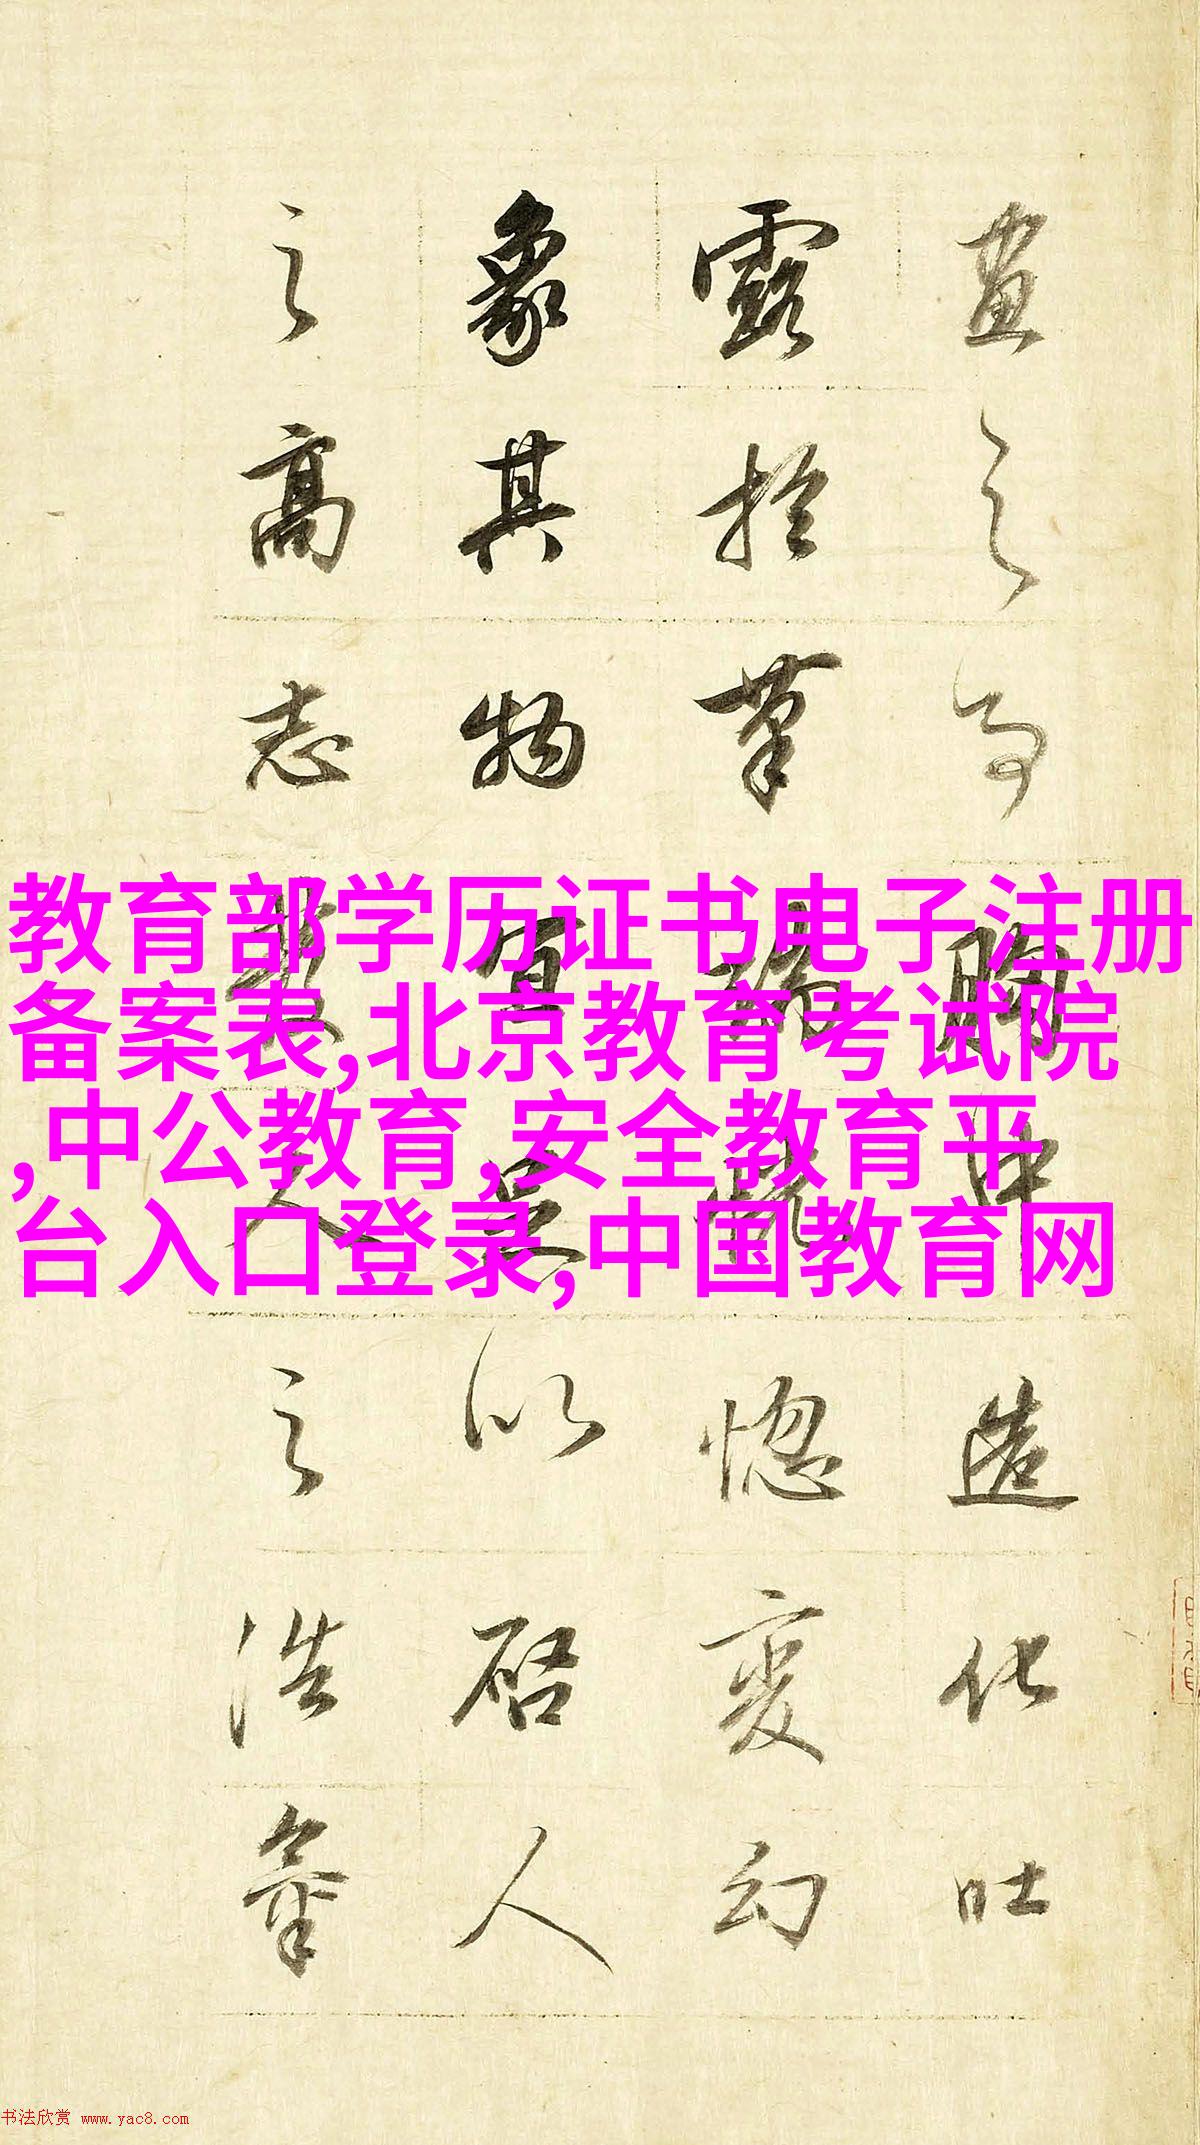 畫之為胸中造化吐
露於筆端恍惚變幻
象其物宜足以啓人
之高志發人之浩氣
教育部学历证书电子注册
备案表,北京教育考试院
,中公教育,安全教育平
台入口登录,中国教育网
书法欣赏 www.yac8.com